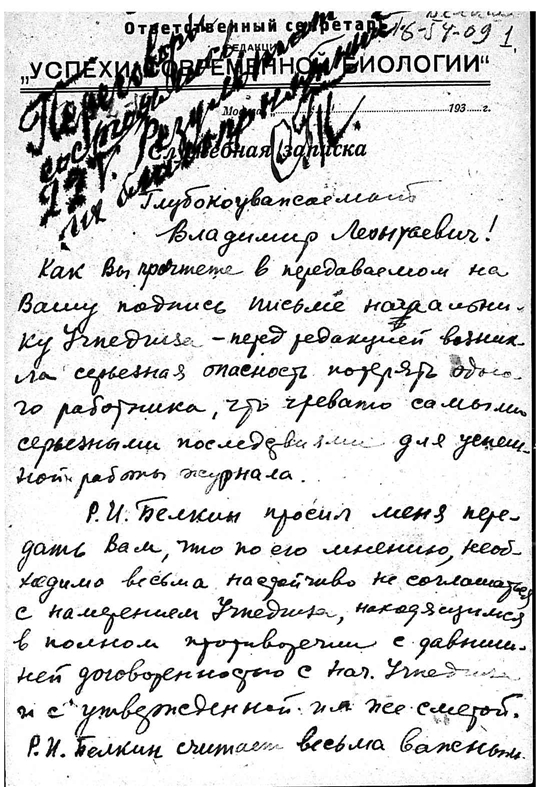 Ответственный секретарь
РЕДАКЦИИ
„УСПЕХИ СОВРЕМЕННОЙ БИОЛОГИИ“
16-54-09 1
Переговоры
состоялись
Москва „ 193 г.
Служебная записка
Глубокоуважаемый
Владимир Леонтьевич!
Как Вы прочтете в передаваемом на
Вашу подпись письме начальни-
ку Учпедгиза – перед редакцией возник-
ла серьезная опасность потерять одно-
го работника, что чревато самыми
серьезными последствиями для успеш-
ной работы журнала.
Р.И. Белкин просил меня пере-
дать Вам, что по его мнению, необ-
ходимо весьма настойчиво не соглашаться
с намерением Учпедгиза, находящимся
в полном противоречии с давниш-
ней договоренностью с нач. Учпедгиза
и с утвержденной им же сметой.
Р.И. Белкин считает весьма важным